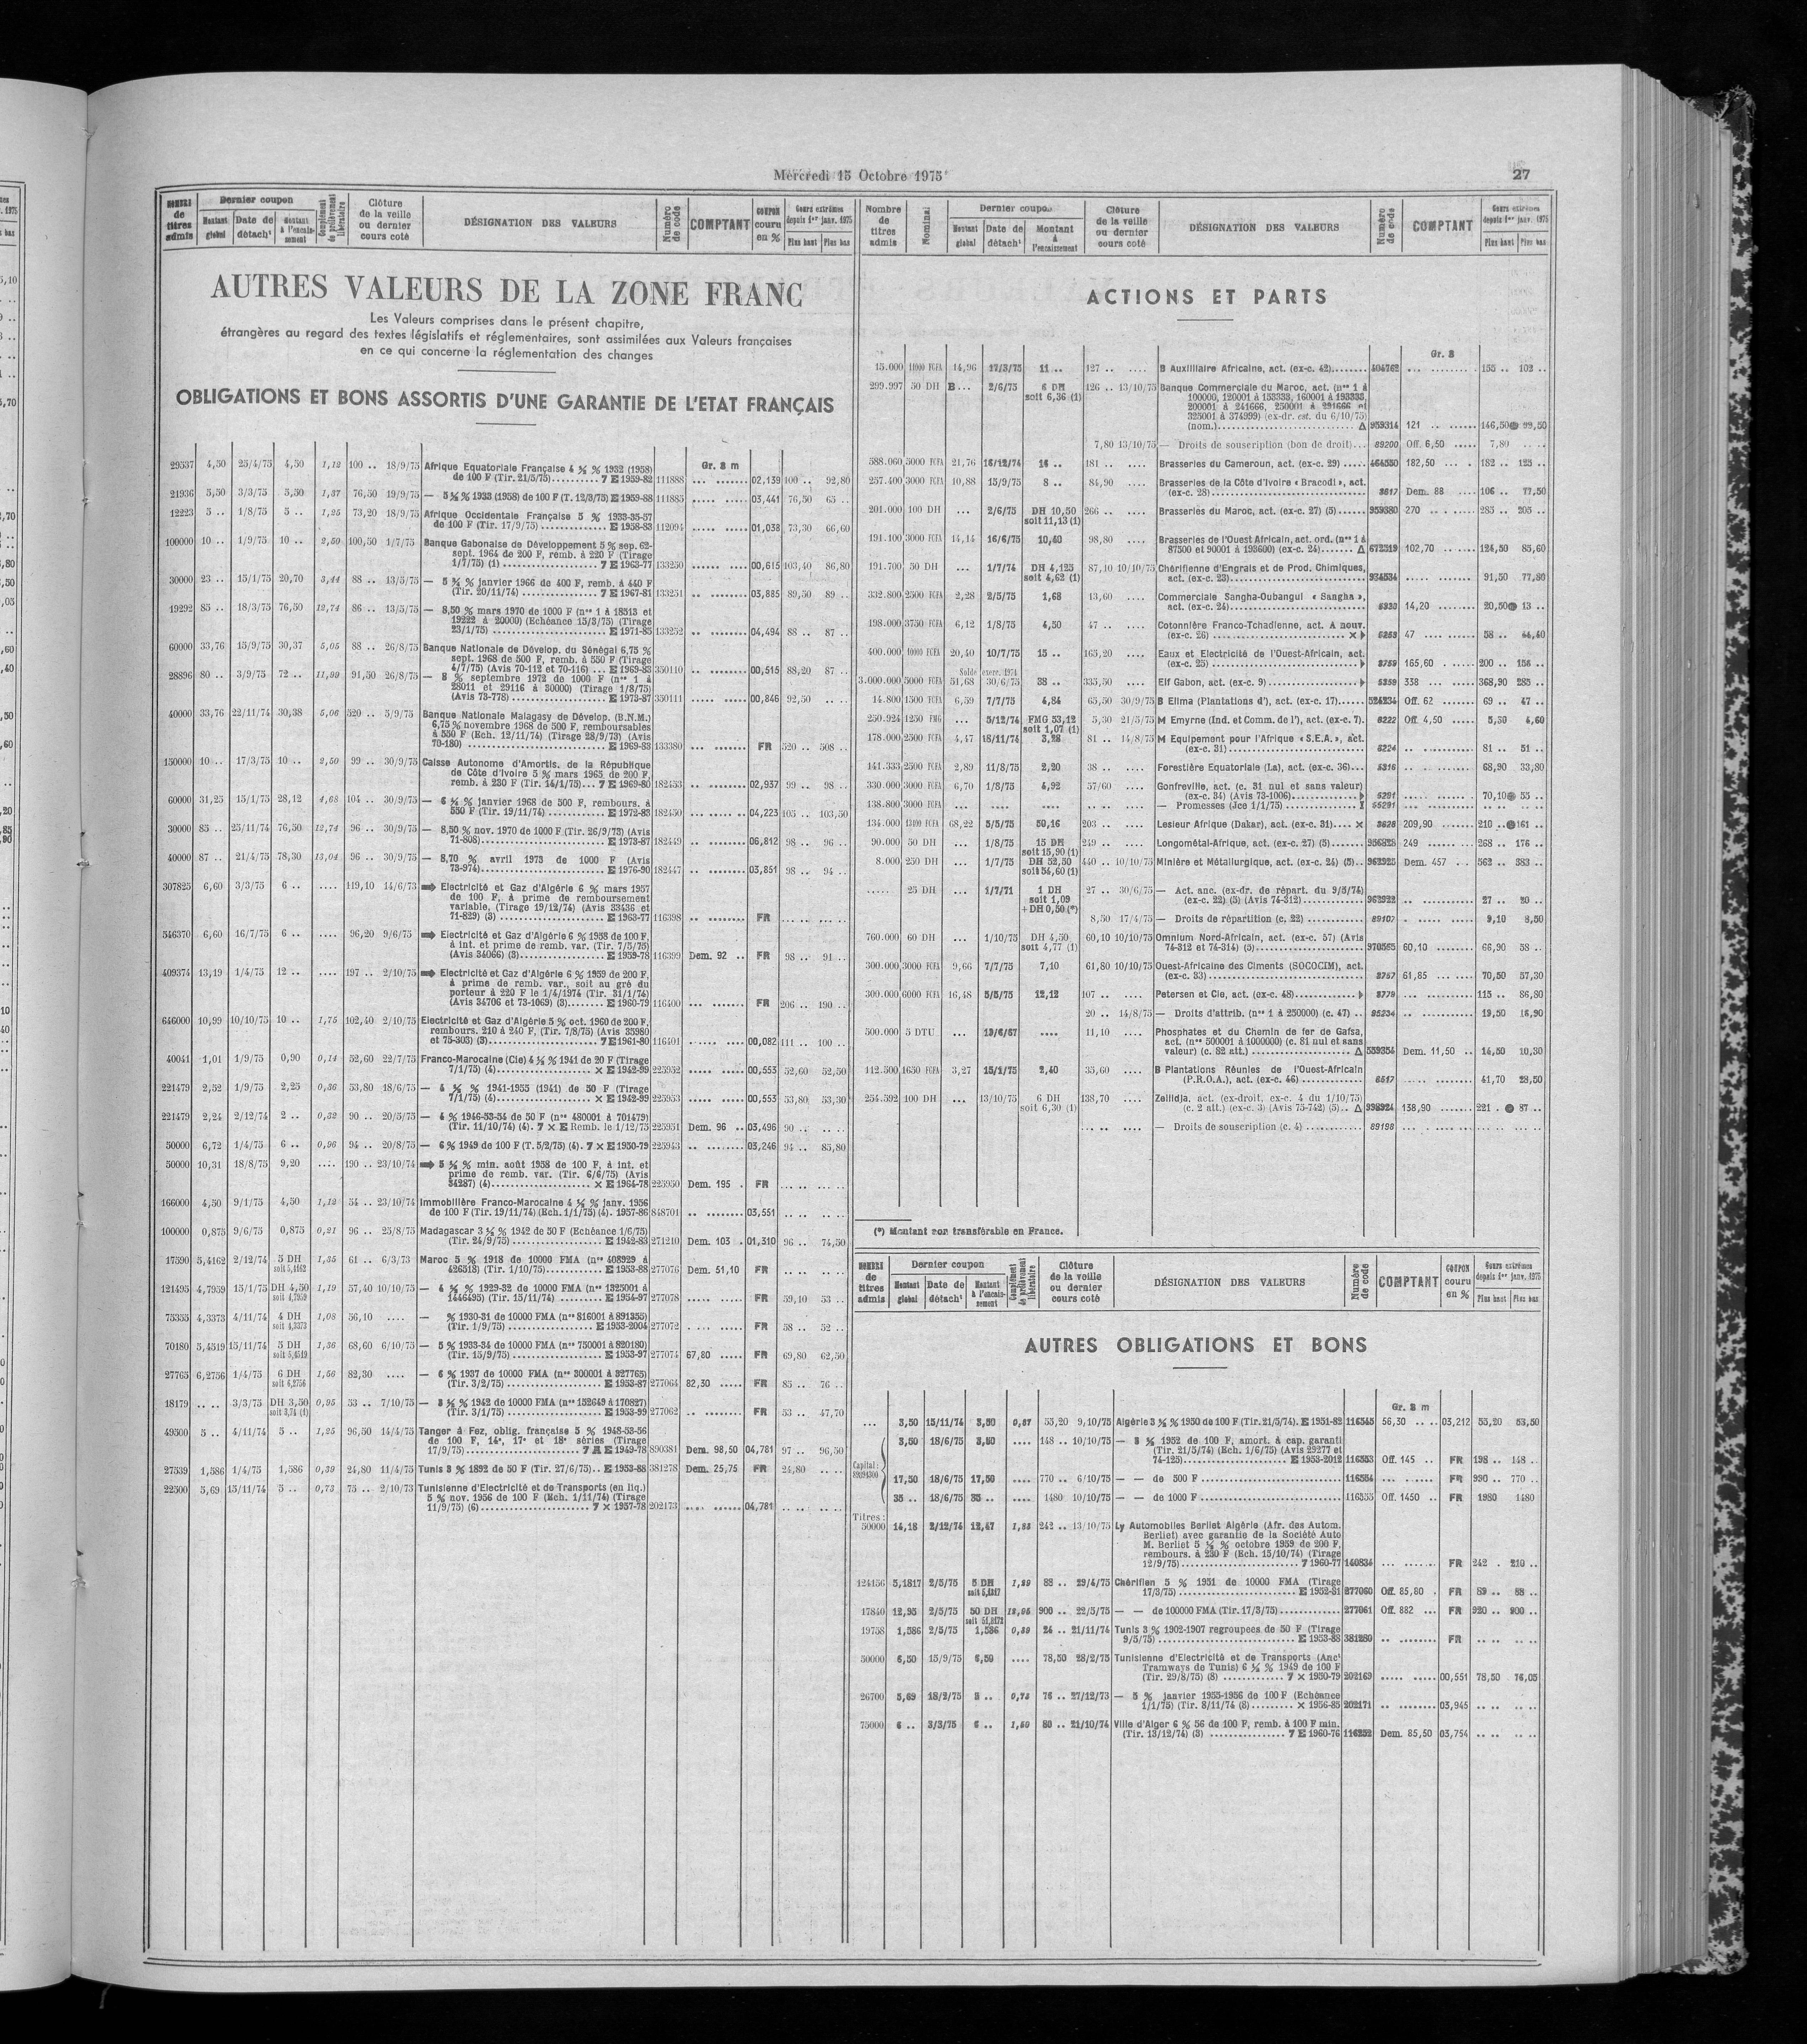 Mercredi 15 Octobre 1975
27
NOMBRE de titres admis
Dernier coupon
Montant global
Date de détach^t
Montant à l'encaissement
Complément de prélèvement libératoire
Clôture de la veille ou dernier cours coté
DÉSIGNATION DES VALEURS
Numéro de code
COMPTANT
COUPON couru en %
Cours extrêmes depuis 1er janv. 1975
Plus haut Plus bas
AUTRES VALEURS DE LA ZONE FRANC
Les Valeurs comprises dans le présent chapitre,
étrangères au regard des textes législatifs et réglementaires, sont assimilées aux Valeurs françaises
en ce qui concerne la réglementation des changes
OBLIGATIONS ET BONS ASSORTIS D'UNE GARANTIE DE L'ETAT FRANÇAIS
Gr. 8 m
29537 4,50 25/4/75 4,50 1,12 100 .. 18/9/75 Afrique Equatoriale Française 4 ½ % 1932 (1958)
de 100 F (Tir. 21/5/75) 7 E 1959-82 111888 02,139 100 .. 92,80
21936 5,50 3/3/75 5,50 1,37 76,50 19/9/75 — 5 ½ % 1933 (1958) de 100 F (T. 12/3/75) E 1959-88 111885 03,441 76,50 65 ..
12223 5 .. 1/8/75 5 .. 1,25 73,20 18/9/75 Afrique Occidentale Française 5 % 1933-35-57
de 100 F (Tir. 17/9/75) E 1958-83 112094 01,038 73,30 66,60
100000 10 .. 1/9/75 10 .. 2,50 100,50 1/7/75 Banque Gabonaise de Développement 5 % sep. 62-
sept. 1964 de 200 F, remb. à 220 F (Tirage
1/7/75) (1) 7 E 1963-77 133250 00,615 103,40 86,80
30000 23 .. 15/1/75 20,70 3,44 88 .. 13/5/75 — 5 ¾ % janvier 1966 de 400 F, remb. à 440 F
(Tir. 20/11/74) 7 E 1967-81 133251 03,885 89,50 89 ..
19292 85 .. 18/3/75 76,50 12,74 86 .. 13/5/75 — 8,50 % mars 1970 de 1000 F (nos 1 à 18513 et
19222 à 20000) (Echéance 15/3/75) (Tirage
23/1/75) E 1971-85 133252 04,494 88 .. 87 ..
60000 33,76 15/9/75 30,37 5,05 88 .. 26/8/75 Banque Nationale de Dévelop. du Sénégal 6,75 %
sept. 1968 de 500 F, remb. à 550 F (Tirage
4/7/75) (Avis 70-112 et 70-116) ... E 1969-83 350110 00,515 88,20 87 ..
28896 80 .. 3/9/75 72 .. 11,99 91,50 26/8/75 — 8 % septembre 1972 de 1000 F (nos 1 à
28011 et 29116 à 30000) (Tirage 1/8/75)
(Avis 73-778) E 1973-87 350111 00,846 92,50
40000 33,76 22/11/74 30,38 5,06 520 .. 5/9/75 Banque Nationale Malagasy de Dévelop. (B.N.M.)
6,75 % novembre 1968 de 500 F, remboursables
à 550 F (Ech. 12/11/74) (Tirage 28/9/73) (Avis
70-180) E 1969-83 133380 FR 520 .. 508 ..
150000 10 .. 17/3/75 10 .. 2,50 99 .. 30/9/75 Caisse Autonome d'Amortis. de la République
de Côte d'Ivoire 5 % mars 1965 de 200 F,
remb. à 230 F (Tir. 14/1/75)... 7 E 1969-80 182453 02,937 99 .. 98 ..
60000 31,25 15/1/75 28,12 4,68 104 .. 30/9/75 — 6 ¼ % janvier 1968 de 500 F, rembours. à
550 F (Tir. 19/11/74) E 1972-83 182450 04,223 105 .. 103,50
30000 85 .. 25/11/74 76,50 12,74 96 .. 30/9/75 — 8,50 % nov. 1970 de 1000 F (Tir. 26/9/73) (Avis
71-808) E 1973-87 182449 06,812 98 .. 96 ..
40000 87 .. 21/4/75 78,30 13,04 96 .. 30/9/75 — 8,70 % avril 1973 de 1000 F (Avis
73-974) E 1976-90 182447 03,851 98 .. 94 ..
307825 6,60 3/3/75 6 .. .... 119,10 14/6/73 Electricité et Gaz d'Algérie 6 % mars 1957
de 100 F, à prime de remboursement
variable, (Tirage 19/12/74) (Avis 33436 et
71-829) (3) E 1963-77 116398 FR
546370 6,60 16/7/75 6 .. .... 96,20 9/6/75 Electricité et Gaz d'Algérie 6 % 1958 de 100 F,
à int. et prime de remb. var. (Tir. 7/5/75)
(Avis 34066) (3) E 1959-78 116399 Dem. 92 .. FR 98 .. 91 ..
409374 13,19 1/4/75 12 .. .... 197 .. 2/10/75 Electricité et Gaz d'Algérie 6 % 1959 de 200 F,
à prime de remb. var., soit au gré du
porteur à 220 F le 1/4/1974 (Tir. 31/1/74)
(Avis 34706 et 73-1069) (3) E 1960-79 116400 FR 206 .. 190 ..
646000 10,99 10/10/75 10 .. 1,75 102,40 2/10/75 Electricité et Gaz d'Algérie 5 % oct. 1960 de 200 F,
rembours. 210 à 240 F, (Tir. 7/8/75) (Avis 35980
et 75-303) (3) 7 E 1961-80 116401 00,082 111 .. 100 ..
40041 1,01 1/9/75 0,90 0,14 52,60 22/7/75 Franco-Marocaine (Cie) 4 ½ % 1941 de 20 F (Tirage
7/1/75) (4) × E 1942-99 225952 00,553 52,60 52,50
221479 2,52 1/9/75 2,25 0,36 53,80 18/6/75 — 4 ½ % 1941-1955 (1941) de 50 F (Tirage
7/1/75) (4) × E 1942-99 225953 00,553 53,80 53,30
221479 2,24 2/12/74 2 .. 0,32 90 .. 20/5/75 — 4 % 1946-53-54 de 50 F (nos 480001 à 701479)
(Tir. 11/10/74) (4). 7 × E Remb. le 1/12/75 225951 Dem. 96 .. 03,496 90 ..
50000 6,72 1/4/75 6 .. 0,96 94 .. 20/8/75 — 6 % 1949 de 100 F (T. 5/2/75) (4). 7 × E 1950-79 225943 03,246 94 .. 85,80
50000 10,31 18/8/75 9,20 .... 190 .. 23/10/74 5 ½ % min. août 1958 de 100 F, à int. et
prime de remb. var. (Tir. 6/6/75) (Avis
34287) (4) × E 1964-78 225950 Dem. 195 . FR
166000 4,50 9/1/75 4,50 1,12 54 .. 23/10/74 Immobilière Franco-Marocaine 4 ½ % janv. 1956
de 100 F (Tir. 19/11/74) (Ech. 1/1/75) (4). 1957-86 848701 03,551
100000 0,875 9/6/75 0,875 0,21 96 .. 25/8/75 Madagascar 3 ½ % 1942 de 50 F (Echéance 1/6/75)
(Tir. 24/9/75) E 1942-83 271210 Dem. 103 . 01,310 96 .. 74,50
17590 5,4162 2/12/74 5 DH soit 5,4162 1,35 61 .. 6/3/73 Maroc 5 % 1918 de 10000 FMA (nos 408929 à
426518) (Tir. 1/10/75) E 1953-88 277076 Dem. 51,10 FR
121495 4,7959 15/1/75 DH 4,50 soit 4,7959 1,19 57,40 10/10/75 — 4 ½ % 1929-32 de 10000 FMA (nos 1325001 à
1446495) (Tir. 15/11/74) E 1954-97 277078 FR 59,10 53 ..
75355 4,3373 4/11/74 4 DH soit 4,3373 1,08 56,10 .... — % 1930-31 de 10000 FMA (nos 816001 à 891355)
(Tir. 1/9/75) E 1953-2004 277072 FR 58 .. 52 ..
70180 5,4519 15/11/74 5 DH soit 5,4519 1,36 68,60 6/10/75 — 5 % 1933-34 de 10000 FMA (nos 750001 à 820180)
(Tir. 15/9/75) E 1953-97 277074 67,80 FR 69,80 62,50
27765 6,2756 1/4/75 6 DH soit 6,2756 1,56 82,30 .... — 6 % 1937 de 10000 FMA (nos 300001 à 327765)
(Tir. 3/2/75) E 1953-87 277064 82,30 FR 85 .. 76 ..
18179 .. .. 3/3/75 DH 3,50 soit 3,74 (1) 0,95 53 .. 7/10/75 — 3 ½ % 1942 de 10000 FMA (nos 152649 à 170827)
(Tir. 3/1/75) E 1953-99 277062 FR 53 .. 47,70
49500 5 .. 4/11/74 5 .. 1,25 96,50 14/4/75 Tanger à Fez, oblig. française 5 % 1948-53-56
de 100 F, 14e, 17e et 18e séries (Tirage
17/9/75) 7 E 1949-78 890381 Dem. 98,50 04,781 97 .. 96,50
27539 1,586 1/4/75 1,586 0,39 24,80 11/4/75 Tunis 3 % 1892 de 50 F (Tir. 27/6/75).. E 1953-88 381278 Dem. 25,75 FR 24,80
22500 5,69 15/11/74 5 .. 0,73 75 .. 2/10/73 Tunisienne d'Electricité et de Transports (en liq.)
5 % nov. 1956 de 100 F (Ech. 1/11/74) (Tirage
11/9/75) (6) 7 × 1957-78 202173 04,781
Nombre de titres admis
Nominal
Dernier coupon
Montant global
Date de détach^t
Montant à l'encaissement
Clôture de la veille ou dernier cours coté
DÉSIGNATION DES VALEURS
Numéro de code
COMPTANT
Cours extrêmes depuis 1er janv. 1975
Plus haut Plus bas
ACTIONS ET PARTS
Gr. 8
15.000 11000 FCFA 14,96 17/3/75 11 .. 127 .. .... B Auxiliaire Africaine, act. (ex-c. 42) 404762 155 .. 102 ..
299.997 50 DH B ... 2/6/75 6 DH soit 6,36 (1) 126 .. 13/10/75 Banque Commerciale du Maroc, act. (nos 1 à
100000, 120001 à 153333, 160001 à 193333,
200001 à 241666, 250001 à 291666 et
325001 à 374999) (ex-dr. est. du 6/10/75)
(nom.) Δ 959314 121 146,50 99,50
7,80 13/10/75 — Droits de souscription (bon de droit)... 89200 Off. 6,50 7,80
588.060 5000 FCFA 21,76 16/12/74 16 .. 181 .. .... Brasseries du Cameroun, act. (ex-c. 29) 464550 182,50 182 .. 125 ..
257.400 3000 FCFA 10,88 15/9/75 8 .. 84,90 .... Brasseries de la Côte d'Ivoire « Bracodi », act.
(ex-c. 28) 8617 Dem. 88 106 .. 77,50
201.000 100 DH ... 2/6/75 DH 10,50 soit 11,13 (1) 266 .. .... Brasseries du Maroc, act. (ex-c. 27) (5) 959380 270 285 .. 205 ..
191.100 3000 FCFA 14,14 16/6/75 10,40 98,80 .... Brasseries de l'Ouest Africain, act. ord. (nos 1 à
87500 et 90001 à 193600) (ex-c. 24) Δ 672319 102,70 124,50 85,60
191.700 50 DH ... 1/7/74 DH 4,125 soit 4,62 (1) 87,10 10/10/75 Chérifienne d'Engrais et de Prod. Chimiques,
act. (ex-c. 23) 934534 91,50 77,80
332.800 2500 FCFA 2,28 2/5/75 1,68 13,60 .... Commerciale Sangha-Oubangui « Sangha »,
act. (ex-c. 24) 14,20 20,50 13 ..
198.000 3750 FCFA 6,12 1/8/75 4,50 47 .. .... Cotonnière Franco-Tchadienne, act. A nouv.
(ex-c. 26) × 47 58 .. 44,40
400.000 10000 FCFA 20,40 10/7/75 15 .. 165,20 .... Eaux et Electricité de l'Ouest-Africain, act.
(ex-c. 25) 8759 165,60 200 .. 156 ..
Solde exerc. 1974
3.000.000 5000 FCFA 51,68 30/6/75 38 .. 335,50 .... Elf Gabon, act. (ex-c. 9) 5359 338 368,90 285 ..
14.800 1500 FCFA 6,59 7/7/75 4,84 65,50 30/9/75 B Elima (Plantations d'), act. (ex-c. 17) 524234 Off. 62 69 .. 47 ..
250.924 1250 FMG ... 5/12/74 FMG 53,12 soit 1,07 (1) 5,30 21/5/75 M Emyrne (Ind. et Comm. de l'), act. (ex-c. 7). 8222 Off. 4,50 5,30 4,60
178.000 2500 FCFA 4,47 18/11/74 3,28 81 .. 14/8/75 M Equipement pour l'Afrique « S.E.A. », act.
(ex-c. 31) 8224 81 .. 51 ..
141.333 2500 FCFA 2,89 11/8/75 2,20 38 .. .... Forestière Equatoriale (La), act. (ex-c. 36)... 5316 68,90 33,80
330.000 3000 FCFA 6,70 1/8/75 4,92 57/60 .... Gonfreville, act. (c. 31 nul et sans valeur)
(ex-c. 34) (Avis 73-1006) 8291 70,10 55 ..
138.800 3000 FCFA — Promesses (Jce 1/1/75) 55291
134.000 13400 FCFA 68,22 5/5/75 50,16 203 .. .... Lesieur Afrique (Dakar), act. (ex-c. 31) × 8626 209,90 210 .. 161 ..
90.000 50 DH ... 1/8/75 15 DH soit 15,90 (1) 249 .. .... Longométal-Afrique, act. (ex-c. 27) (5) 956828 249 268 .. 176 ..
8.000 250 DH ... 1/7/75 DH 52,50 soit 54,60 (1) 440 .. 10/10/75 Minière et Métallurgique, act. (ex-c. 24) (5).. 962925 Dem. 457 562 .. 383 ..
..... 25 DH ... 1/7/71 1 DH soit 1,09 + DH 0,50 (*) 27 .. 30/6/75 — Act. anc. (ex-dr. de répart. du 9/5/74)
(ex-c. 22) (5) (Avis 74-312) 962922 27 .. 20 ..
8,50 17/4/75 — Droits de répartition (c. 22) 89107 9,10 8,50
760.000 60 DH ... 1/10/75 DH 4,50 soit 4,77 (1) 60,10 10/10/75 Omnium Nord-Africain, act. (ex-c. 57) (Avis
74-312 et 74-314) (5) 970565 60,10 66,90 58 ..
300.000 3000 FCFA 9,66 7/7/75 7,10 61,80 10/10/75 Ouest-Africaine des Ciments (SOCOCIM), act.
(ex-c. 33) 8757 61,85 70,50 57,30
300.000 6000 FCFA 16,48 5/5/75 12,12 107 .. .... Petersen et Cie, act. (ex-c. 48) 8779 115 .. 86,80
20 .. 14/8/75 — Droits d'attrib. (nos 1 à 250000) (c. 47) .. 95234 19,50 16,90
500.000 5 DTU ... 19/6/67 .... 11,10 .... Phosphates et du Chemin de fer de Gafsa,
act. (nos 500001 à 1000000) (c. 81 nul et sans
valeur) (c. 82 att.) Δ 559354 Dem. 11,50 14,50 10,30
112.500 1650 FCFA 3,27 15/1/75 2,40 35,60 .... B Plantations Réunies de l'Ouest-Africain
(P.R.O.A.), act. (ex-c. 46) 6517 41,70 28,50
254.592 100 DH ... 13/10/75 6 DH soit 6,30 (1) 138,70 .... Zellidja, act. (ex-droit, ex-c. 4 du 1/10/75)
(c. 2 att.) (ex-c. 3) (Avis 75-742) (5).. Δ 998924 138,90 221 . 87 ..
— Droits de souscription (c. 4) 89198
(*) Montant non transférable en France.
NOMBRE de titres admis
Dernier coupon
Montant global
Date de détach^t
Montant à l'encaissement
Complément de prélèvement libératoire
Clôture de la veille ou dernier cours coté
DÉSIGNATION DES VALEURS
Numéro de code
COMPTANT
COUPON couru en %
Cours extrêmes depuis 1er janv. 1975
Plus haut Plus bas
AUTRES OBLIGATIONS ET BONS
Gr. 8 m
... 3,50 15/11/74 3,50 0,87 55,20 9/10/75 Algérie 3 ½ % 1950 de 100 F (Tir. 21/5/74). E 1951-82 116545 56,30 03,212 55,20 53,50
3,50 18/6/75 3,50 .... 148 .. 10/10/75 — 3 % 1952 de 100 F, amort. à cap. garanti
(Tir. 21/5/74) (Ech. 1/6/75) (Avis 29277 et
74-125) E 1953-2012 116553 Off. 145 .. FR 198 .. 148 ..
Capital :
17,50 18/6/75 17,50 .... 770 .. 6/10/75 — — de 500 F 116554 FR 990 .. 770 ..
35 .. 18/6/75 35 .. .... 1480 10/10/75 — — de 1000 F 116555 Off. 1450 .. FR 1980 1480
Titres :
50000 14,18 2/12/74 12,47 1,88 242 .. 13/10/75 Ly Automobiles Berliet Algérie (Afr. des Autom.
Berliet) avec garantie de la Société Auto
M. Berliet 5 ¼ % octobre 1959 de 200 F,
rembours. à 230 F (Ech. 15/10/74) (Tirage
12/9/75) 7 1960-77 140834 FR 242 . 210 ..
124156 5,1817 2/5/75 5 DH 1,29 88 .. 29/4/75 Chérifien 5 % 1951 de 10000 FMA (Tirage
17/3/75) E 1952-81 277060 Off. 85,80 . FR 89 .. 88 ..
17840 12,95 2/5/75 50 DH 12,95 900 .. 22/5/75 — — de 100000 FMA (Tir. 17/3/75) 277061 Off. 882 ... FR 920 .. 900 ..
19758 1,586 2/5/75 1,586 0,39 24 .. 21/11/74 Tunis 3 % 1902-1907 regroupées de 50 F (Tirage
9/5/75) E 1953-88 381280 FR
50000 6,50 15/9/75 6,50 .... 78,50 28/2/75 Tunisienne d'Electricité et de Transports (Anct
Tramways de Tunis) 6 ½ % 1949 de 100 F
(Tir. 29/8/75) (8) 7 × 1950-79 202169 00,551 78,50 76,05
26700 5,69 18/2/75 5 .. 0,73 76 .. 27/12/73 — 5 % janvier 1955-1956 de 100 F (Echéance
1/1/75) (Tir. 8/11/74 (8) × 1956-85 202171 03,945
75000 6 .. 3/3/75 6 .. 1,50 80 .. 21/10/74 Ville d'Alger 6 % 56 de 100 F, remb. à 100 F min.
(Tir. 13/12/74) (3) 7 E 1960-76 116252 Dem. 85,50 03,754